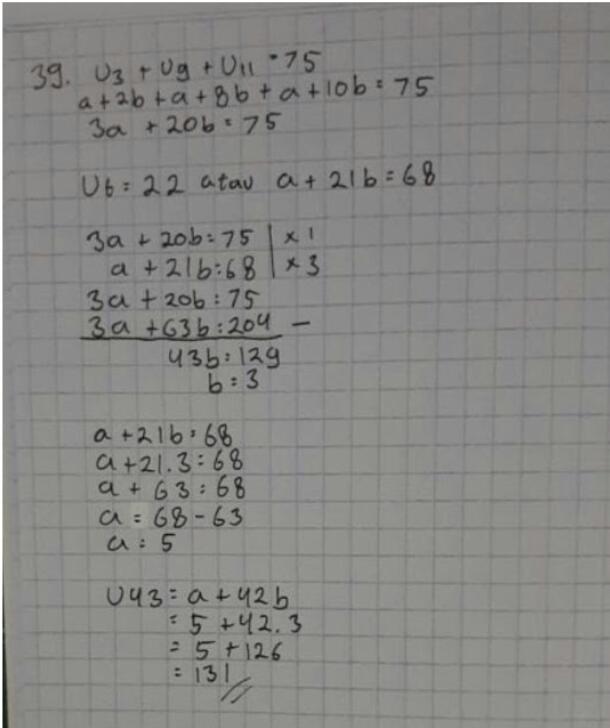 39. U3 + U9 + U11 = 75
a + 2b + a + 8b + a + 10b = 75
3a + 20b = 75
U6 = 22 atau a + 21b = 68
3a + 20b = 75 | x 1
a + 21b = 68 | x 3
3a + 20b = 75
3a + 63b = 204 −
43b = 129
b = 3
a + 21b = 68
a + 21.3 = 68
a + 63 = 68
a = 68 - 63
a = 5
U43 = a + 42b
= 5 + 42.3
= 5 + 126
= 131 //